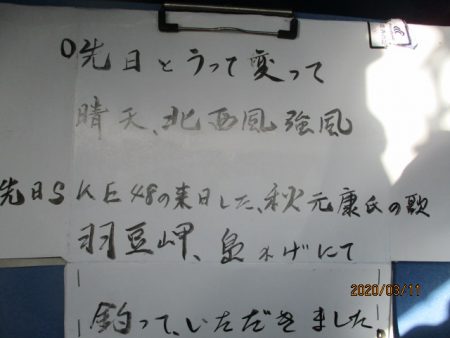 ○先日とうって変って
晴天、北西風強風
先日SKE48の来日した、秋元康氏の歌
羽豆岬、島かげにて
釣って、いただきました。
2020/03/11